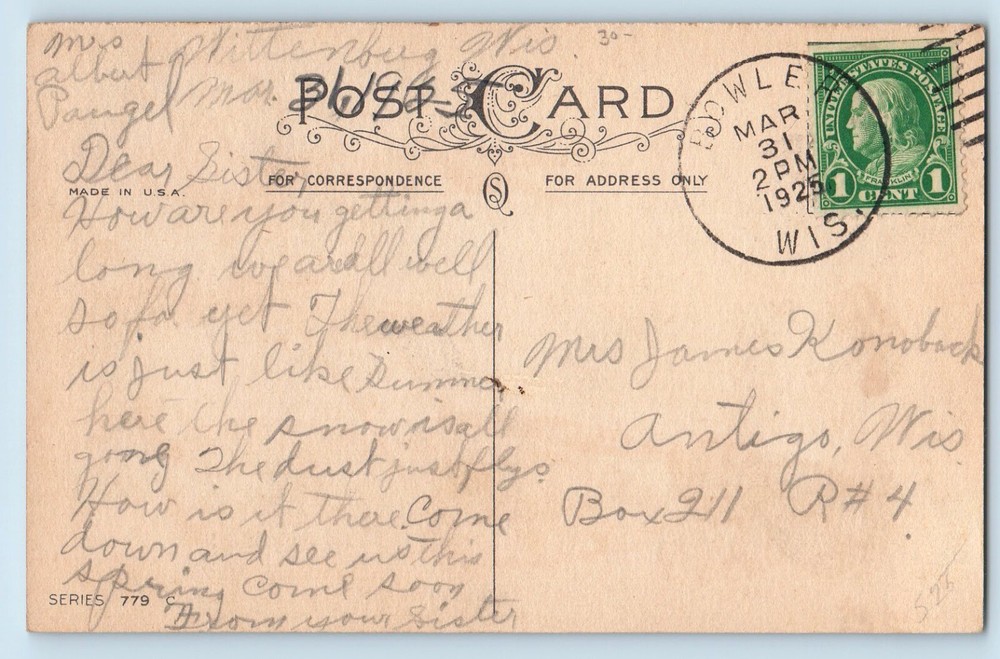 Mrs Wittenberg Wis
Albert Mar. 31, 1925
Pangel
POST CARD
Dear Sister,
MADE IN U.S.A.
FOR CORRESPONDENCE
FOR ADDRESS ONLY
How are you getting a
long we are all well
so fa yet The weather
is just like summer
here the snow is all
gone The dust just flys
How is it there. Come
down and see us this
spring come soon
From your Sister
SERIES 779 C
BOWLER
MAR
31
2 PM
1925
WIS.
UNITED STATES POSTAGE
FRANKLIN
1 CENT 1
Mrs James Konoback
Antigo, Wis
Box 211 R#4.
30-
525